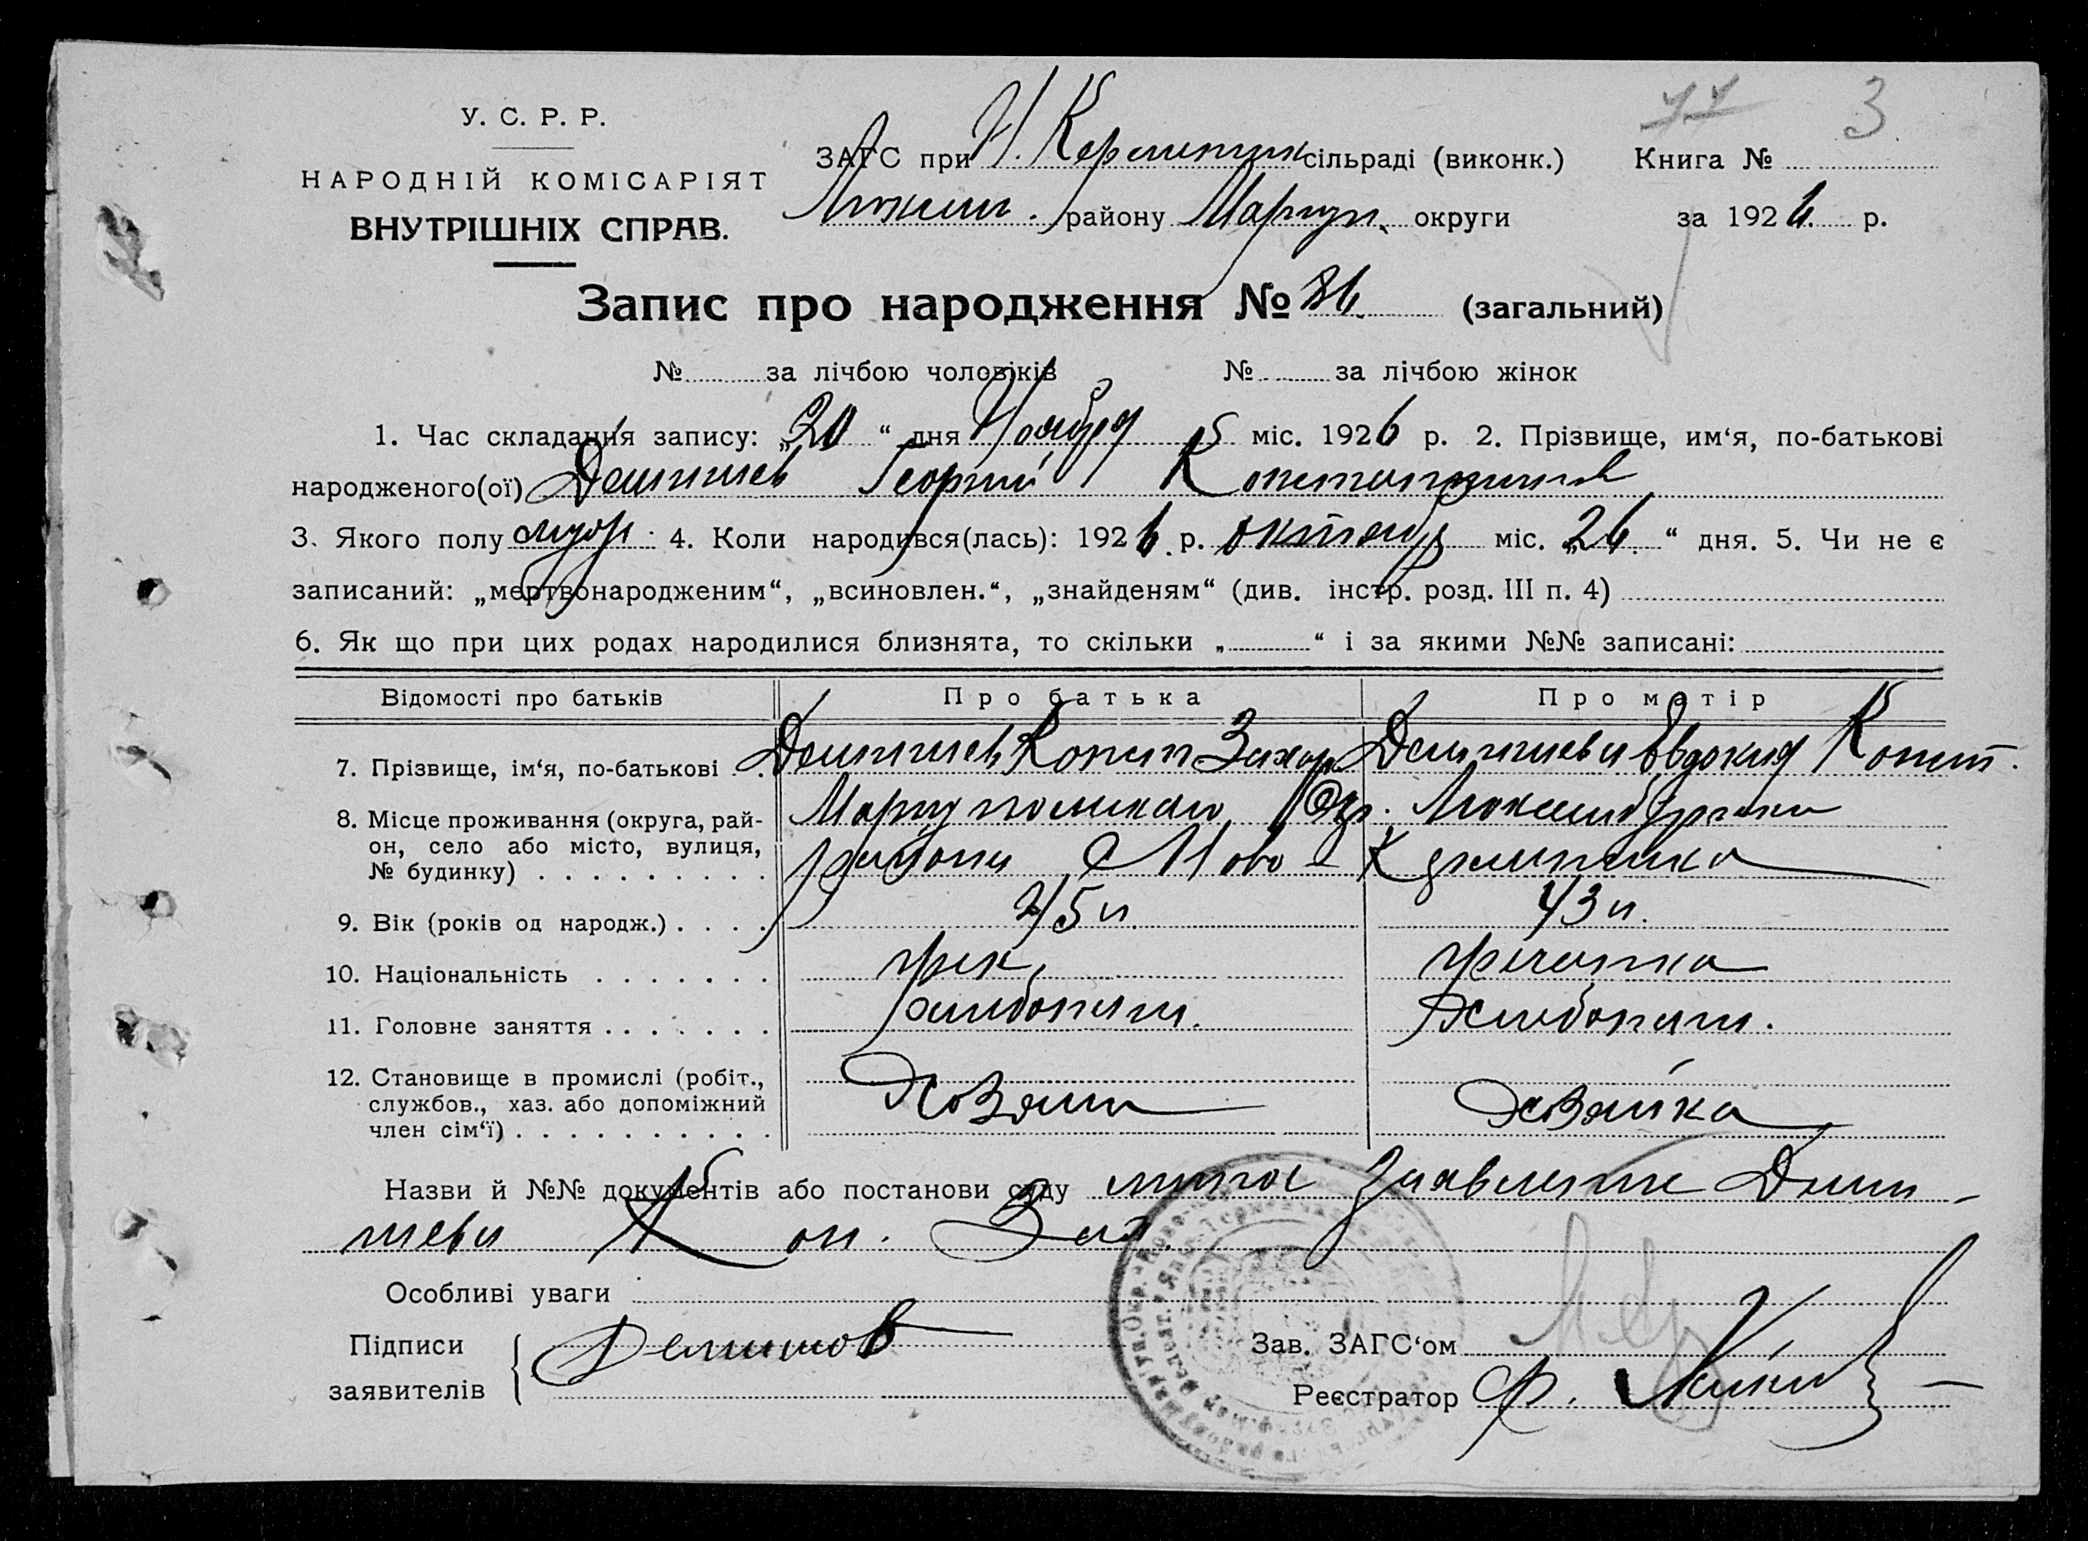 У. С. Р. Р.
НАРОДНІЙ КОМІСАРІЯТ
ВНУТРІШНІХ СПРАВ.
77 3
ЗАГС при Н. Керменчик сільраді (виконк.) Книга №
району Мариуп. округи за 1926 р.
Запис про народження № 86 (загальний)
№ за лічбою чоловіків № за лічбою жінок
1. Час складання запису: „20“ дня Ноября міс. 1926 р. 2. Прізвище, им‘я, по-батькові
народженого(ої) Георгий
3. Якого полу муж. 4. Коли народився(лась): 1926 р. октябр міс. „26“ дня. 5. Чи не є
записаний: „мертвонародженим“, „всиновлен.“, „знайденям“ (див. інстр. розд. III п. 4)
6. Як що при цих родах народилися близнята, то скільки „ “ і за якими №№ записані:
Відомості про батьків Про батька Про матір
7. Прізвище, ім‘я, по-батькові Конст Захар Евдокия Конст.
8. Місце проживання (округа, рай-
он, село або місто, вулиця,
№ будинку)
Мариупольского Окр.
района с Ново-Керменчика
9. Вік (років од народж.) 45 л. 43 л.
10. Національність грек гречанка
11. Головне заняття хлебопаш. хлебопаш.
12. Становище в промислі (робіт.,
службов., хаз. або допоміжний
член сім‘ї)
Хозяин хозяйка
Назви й №№ документів або постанови суду заявление
Кон. Зах.
Особливі уваги
Підписи
заявителів
Зав. ЗАГС‘ом
Реєстратор Ф.